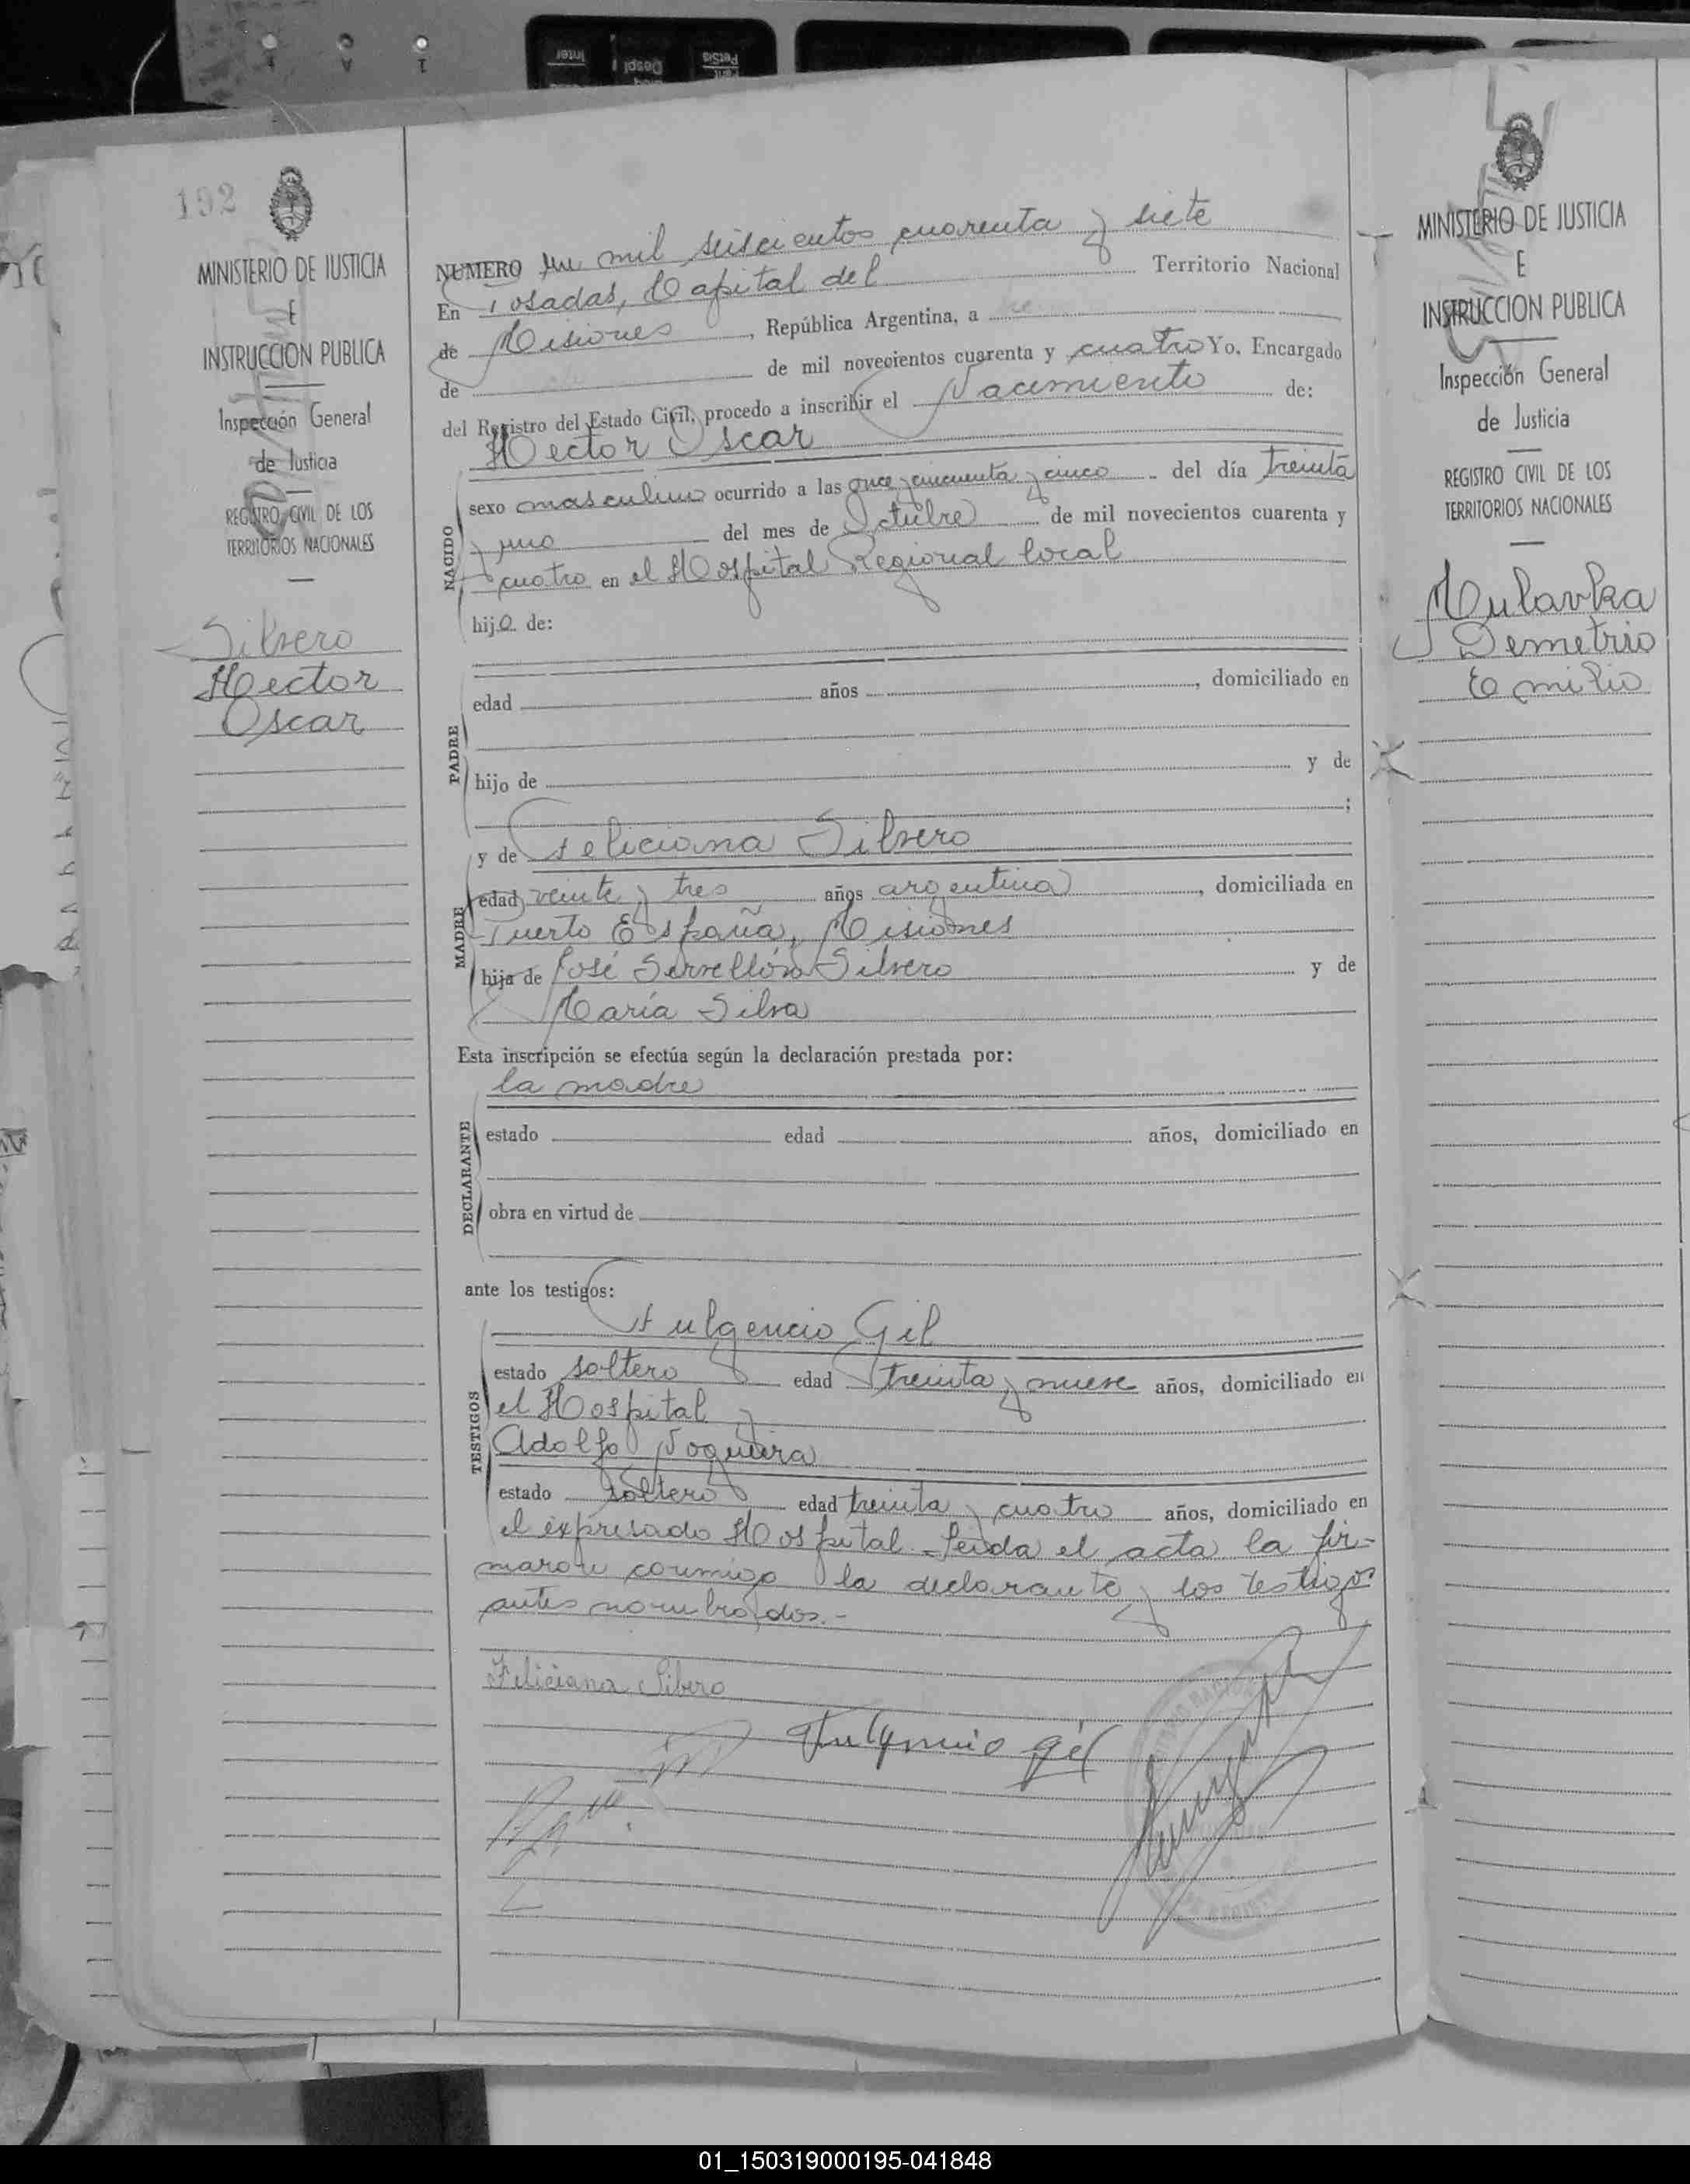 192
MINISTERIO DE JUSTICIA
E
INSTRUCCION PUBLICA
Inspección General
de Justicia
REGISTRO CIVIL DE LOS
TERRITORIOS NACIONALES
Silvero
Hector
Oscar
NUMERO un mil seiscientos cuarenta y siete
En Posadas, Capital del Territorio Nacional
de Misiones, República Argentina, a
de de mil novecientos cuarenta y cuatro Yo, Encargado
del Registro del Estado Civil, procedo a inscribir el Nacimiento de:
Hector Oscar
NACIDO
sexo masculino ocurrido a las once y cincuenta y cinco del día treinta
y uno del mes de Octubre de mil novecientos cuarenta y
cuatro en el Hospital Regional local
hijo de:
PADRE
edad años , domiciliado en
hijo de y de
;
y de Feliciana Silvero
MADRE
edad veinte y tres años argentina , domiciliada en
Puerto España, Misiones
hija de José Servellón Silvero y de
María Silva
Esta inscripción se efectúa según la declaración prestada por:
la madre
DECLARANTE
estado edad años, domiciliado en
obra en virtud de
ante los testigos:
Fulgencio Gil
TESTIGOS
estado soltero edad treinta y nueve años, domiciliado en
el Hospital y
Adolfo Noguera
estado soltero edad treinta y cuatro años, domiciliado en
el expresado Hospital.- Leida el acta la fir-
maron conmigo la declarante y los testigos
antes nombrados.-
Feliciana Silvero
Fulgencio Gil
MINISTERIO DE JUSTICIA
E
INSTRUCCION PUBLICA
Inspección General
de Justicia
REGISTRO CIVIL DE LOS
TERRITORIOS NACIONALES
Mulavka
Demetrio
Emilio
01_150319000195-041848